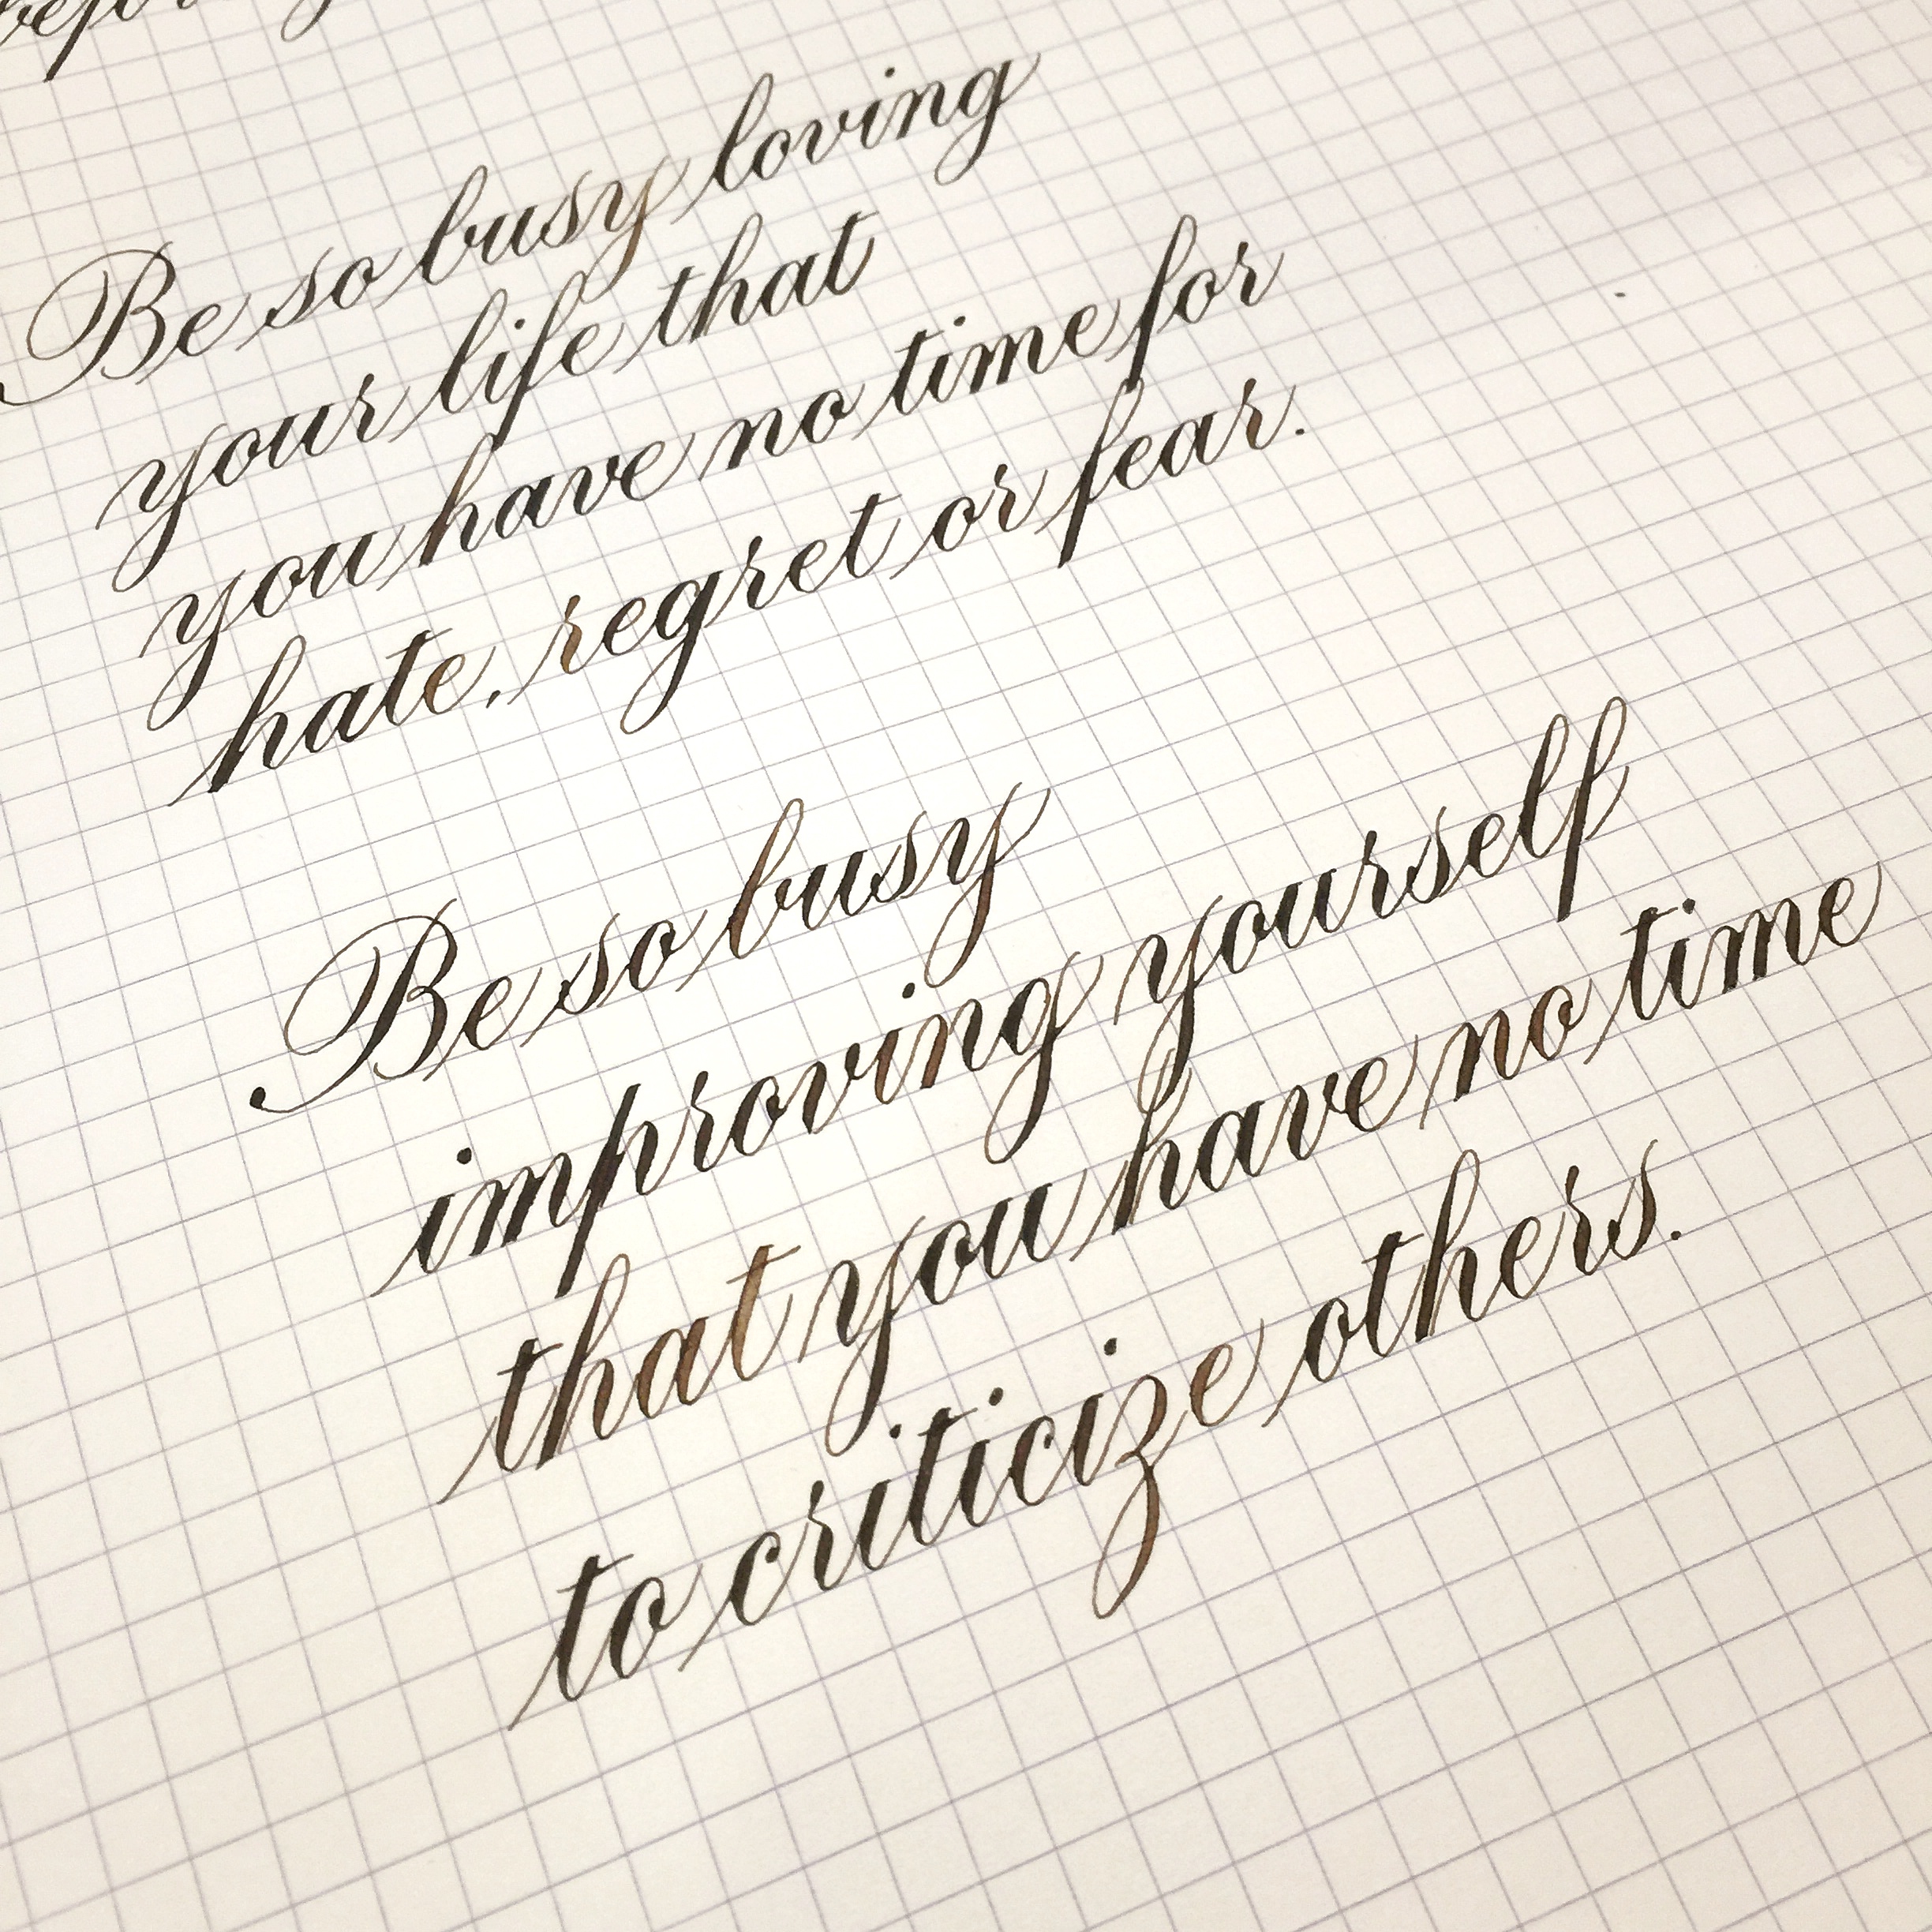 Be so busy loving
your life that
you have no time for
hate, regret or fear.
Be so busy
improving yourself
that you have no time
to criticize others.